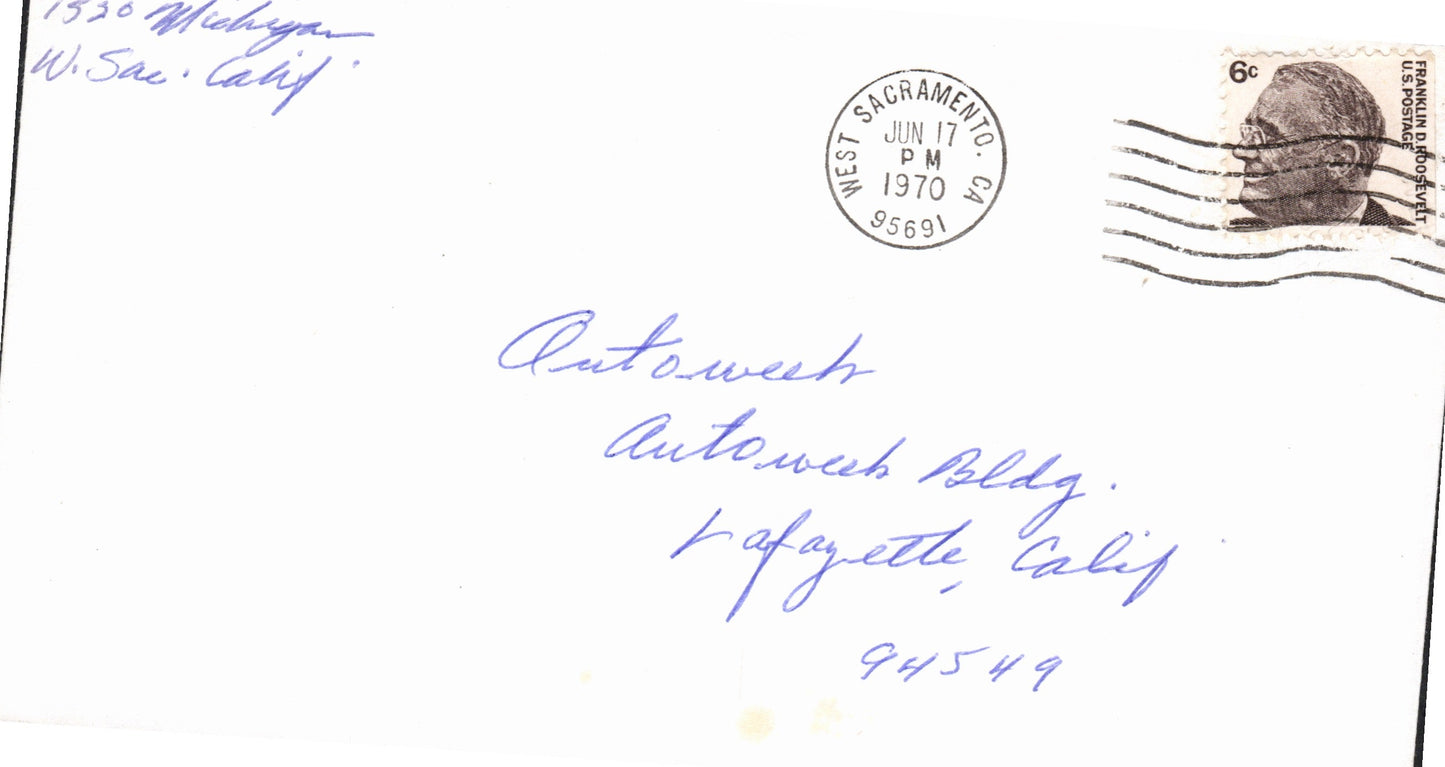 1520 Michigan
W. Sac. Calif
WEST SACRAMENTO. CA
JUN 17
PM
1970
95691
6c
FRANKLIN D. ROOSEVELT
U.S. POSTAGE
Autoweek
Autoweek Bldg.
Lafayette, Calif
94549